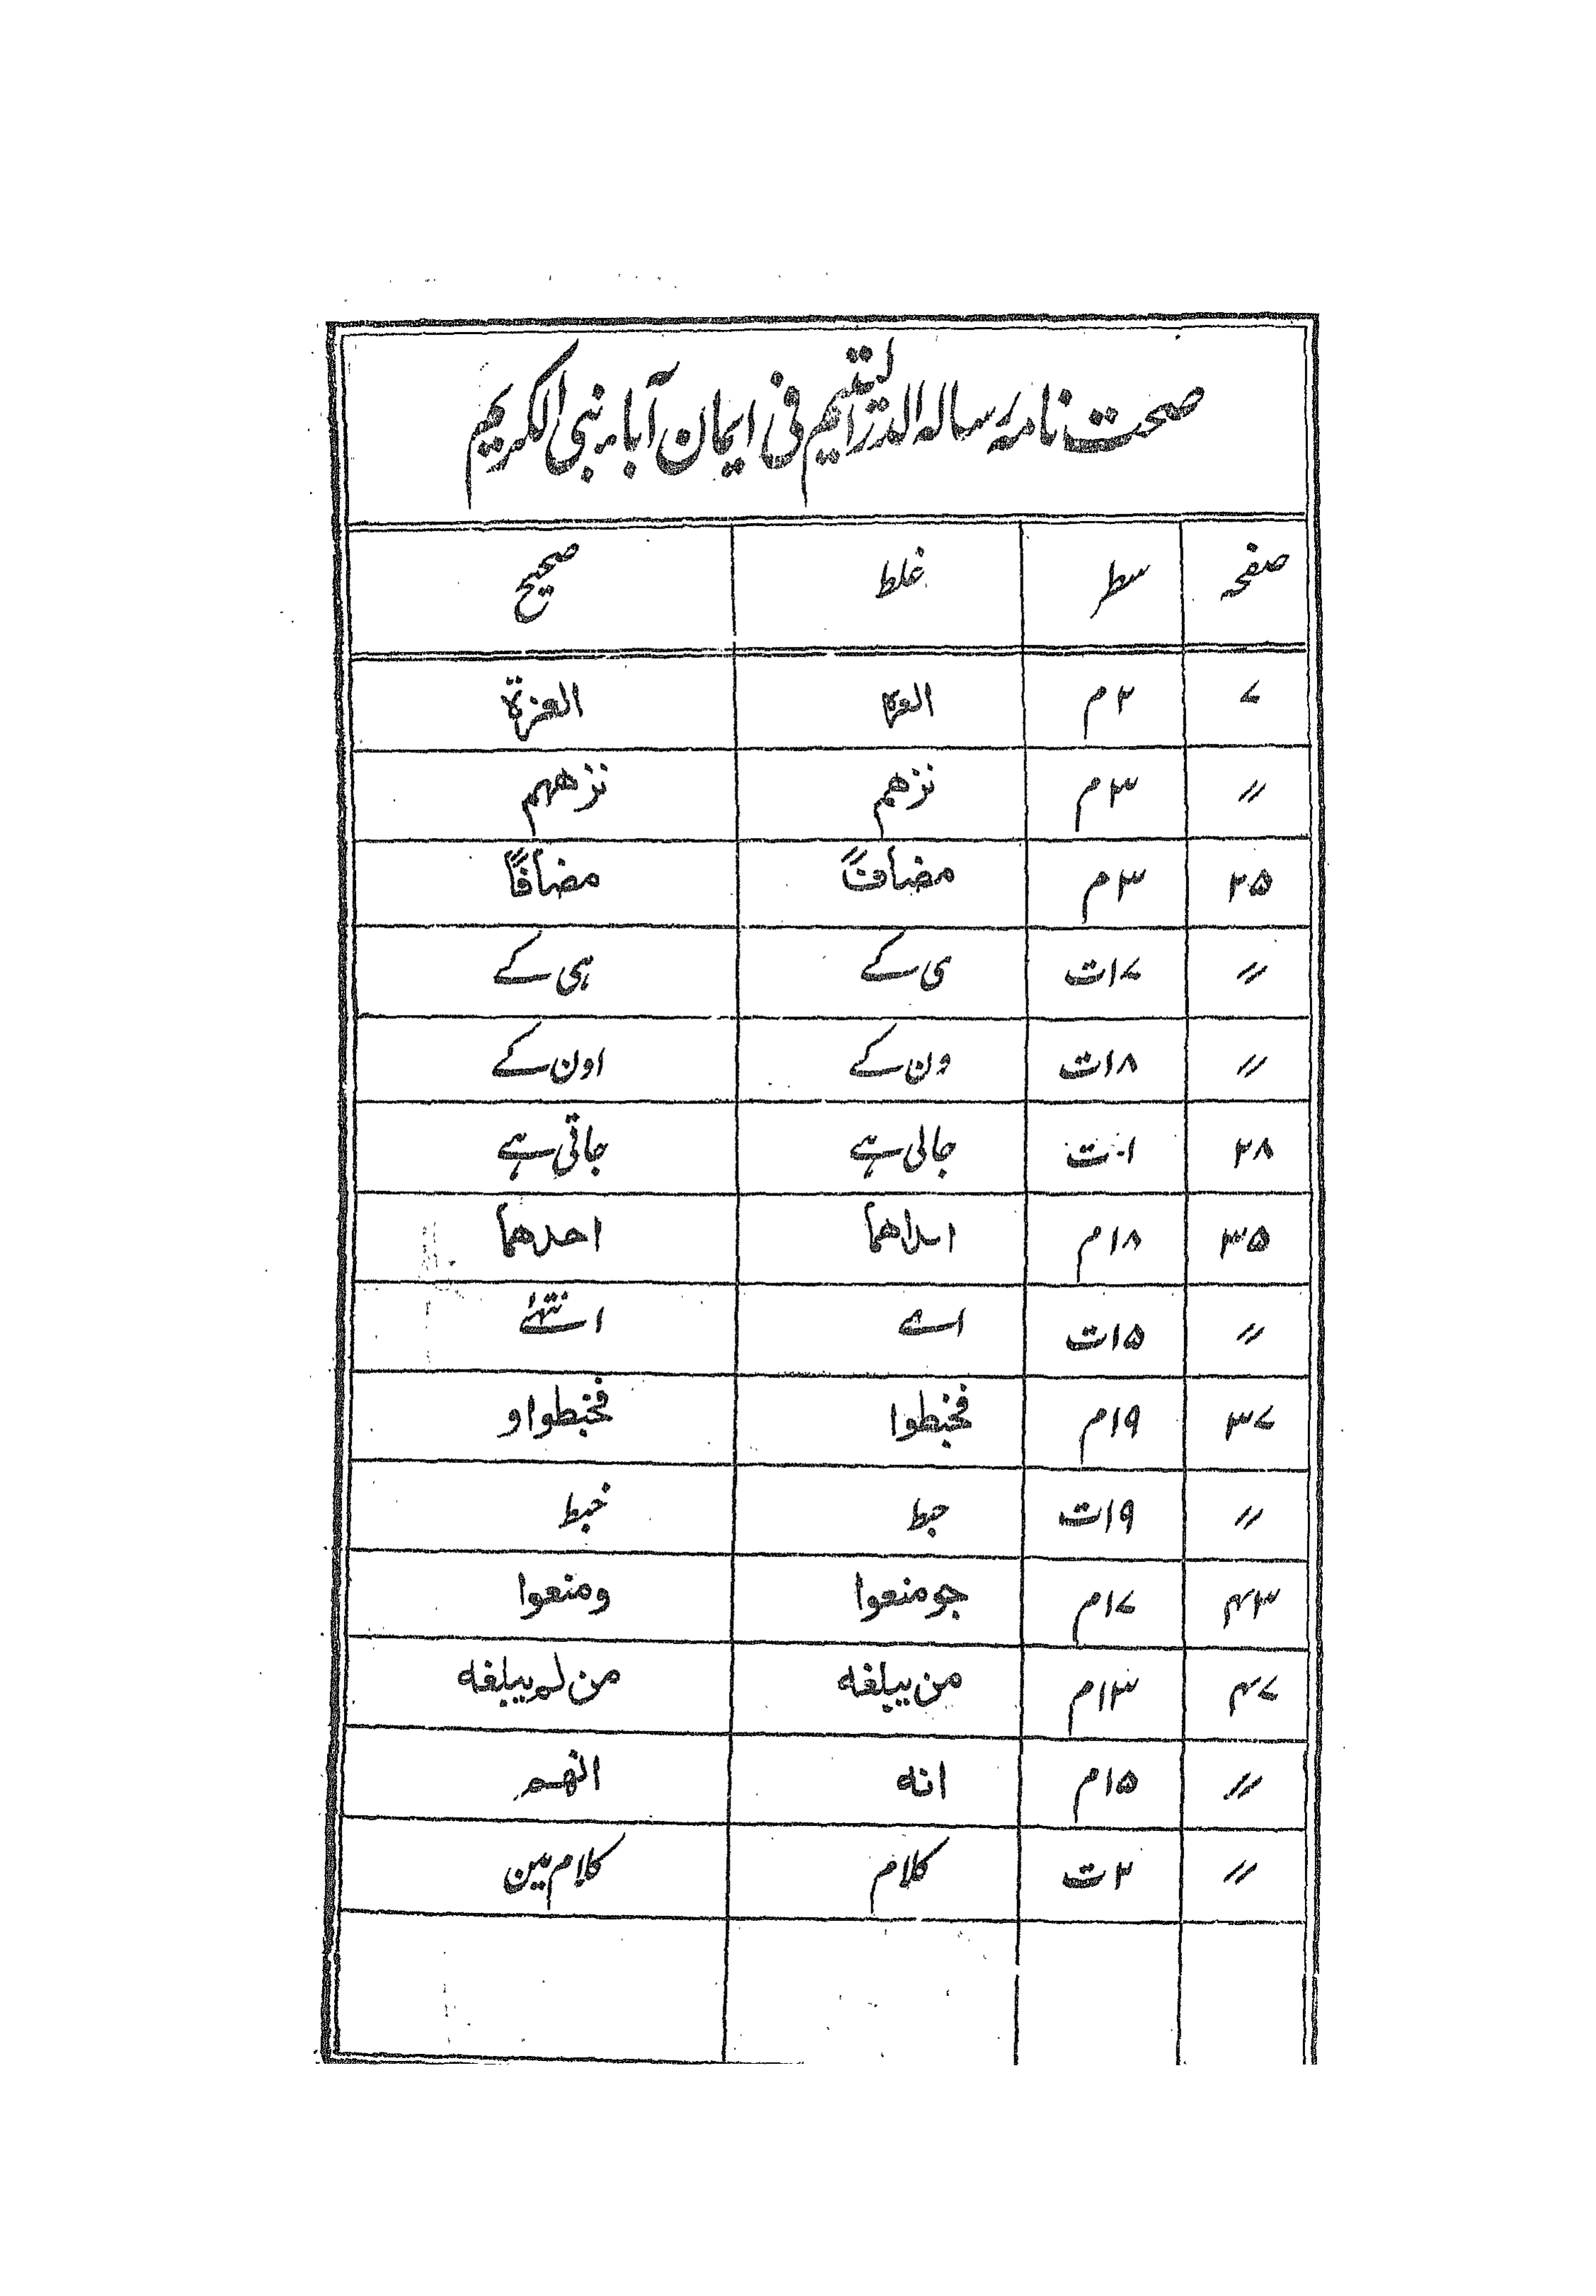 صحت نامہ رسالہ الدر الیتیم فی ایمان آباء نبی الکریم
صفحہ سطر غلط صحیح
۷ ۲م العزہ العزۃ
〃 ۳م نزهم نزههم
۲۵ ۳م مضافً مضافًا
〃 ۱۷ت ی کے ہی کے
〃 ۱۸ت ون کے اون کے
۲۸ ۱۰ت جالی ہے جاتی ہے
۳۵ ۱۸م احدهما
〃 ۱۵ت اسے انتهٰے
۳۷ ۱۹م فخبطوا فخبطوا و
〃 ۱۹ت حبط خبط
۴۳ ۱۷م جومنعوا ومنعوا
۴۷ ۱۳م من يبلغه من لم يبلغه
〃 ۱۵م انه انهم
〃 ۲ت کلام کلام مین